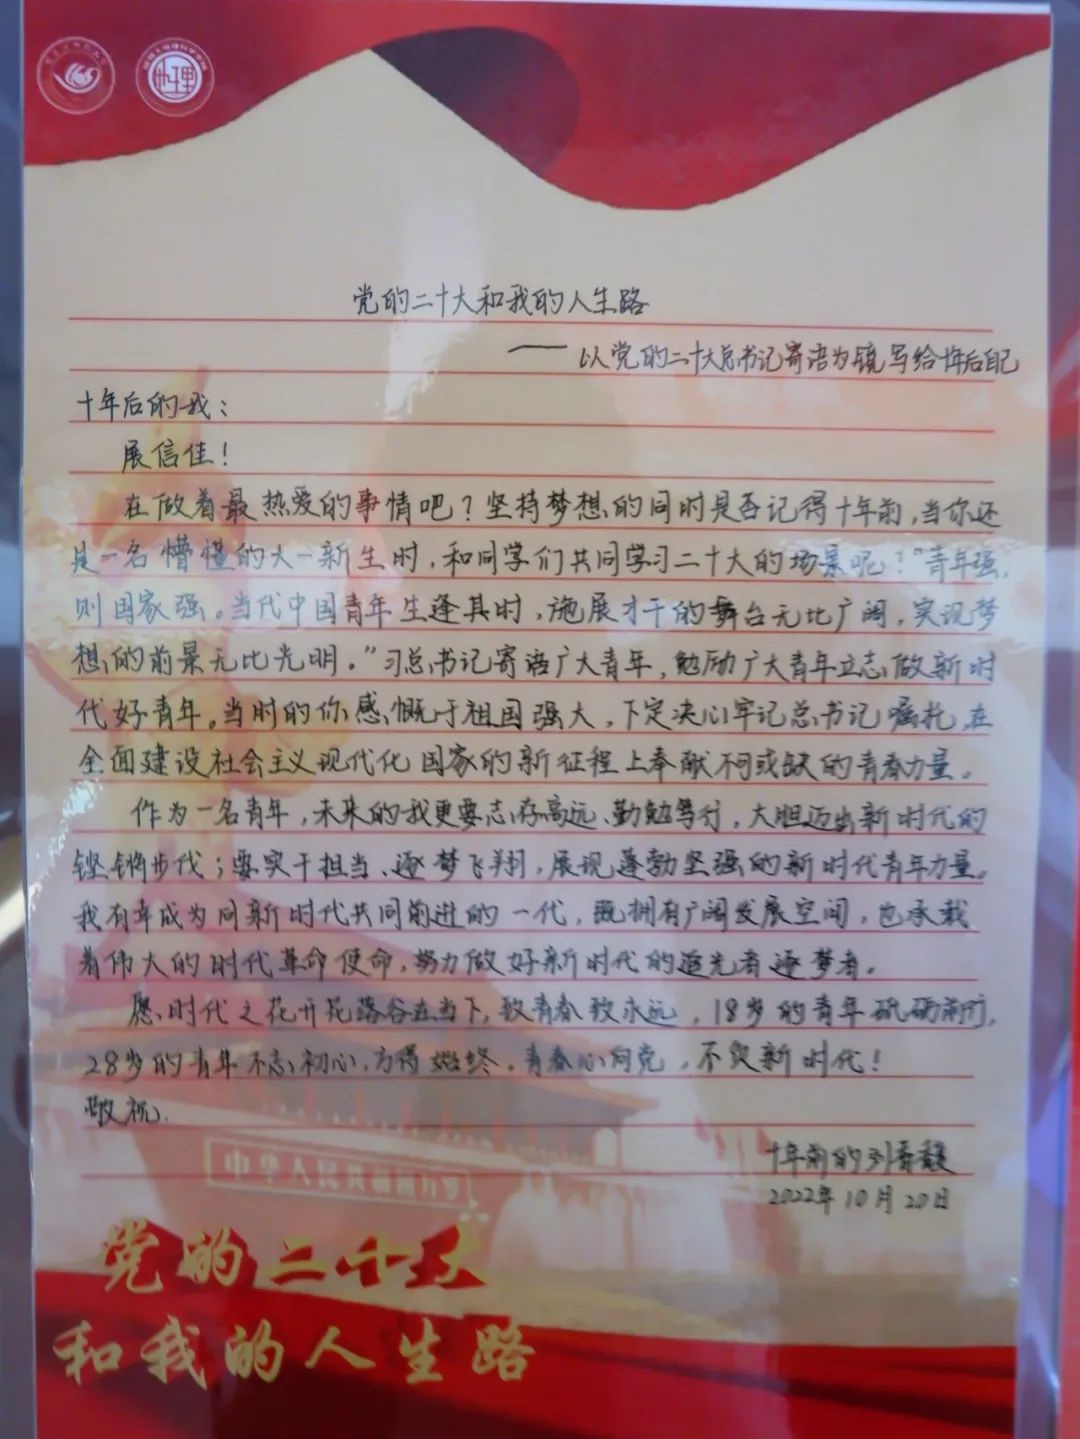 党的二十大和我的人生路
—— 以党的二十大总书记寄语为镜写给十年后自己
十年后的我：
展信佳！
在做着最热爱的事情吧？坚持梦想的同时是否记得十年前，当你还
是一名懵懂的大一新生时，和同学们共同学习二十大的场景呢？“青年强，
则国家强。当代中国青年生逢其时，施展才干的舞台无比广阔，实现梦
想的前景无比光明。”习总书记寄语广大青年，勉励广大青年立志做新时
代好青年。当时的你感慨于祖国强大，下定决心牢记总书记嘱托，在
全面建设社会主义现代化国家的新征程上奉献不可或缺的青春力量。
作为一名青年，未来的我更要志存高远、勤勉笃行，大胆迈出新时代的
铿锵步伐；要实干担当、逐梦飞翔，展现蓬勃坚强的新时代青年力量。
我有幸成为同新时代共同前进的一代，既拥有广阔发展空间，也承载
着伟大的时代革命使命，努力做好新时代的追光者逐梦者。
愿时代之花开花落谷在当下，致青春致永远，18岁的青年砥砺前行，
28岁的青年不忘初心，方得始终。青春心向党，不负新时代！
敬祝
十年前的刘馨
2022年10月20日
中华人民共和国万岁
党的二十大
和我的人生路